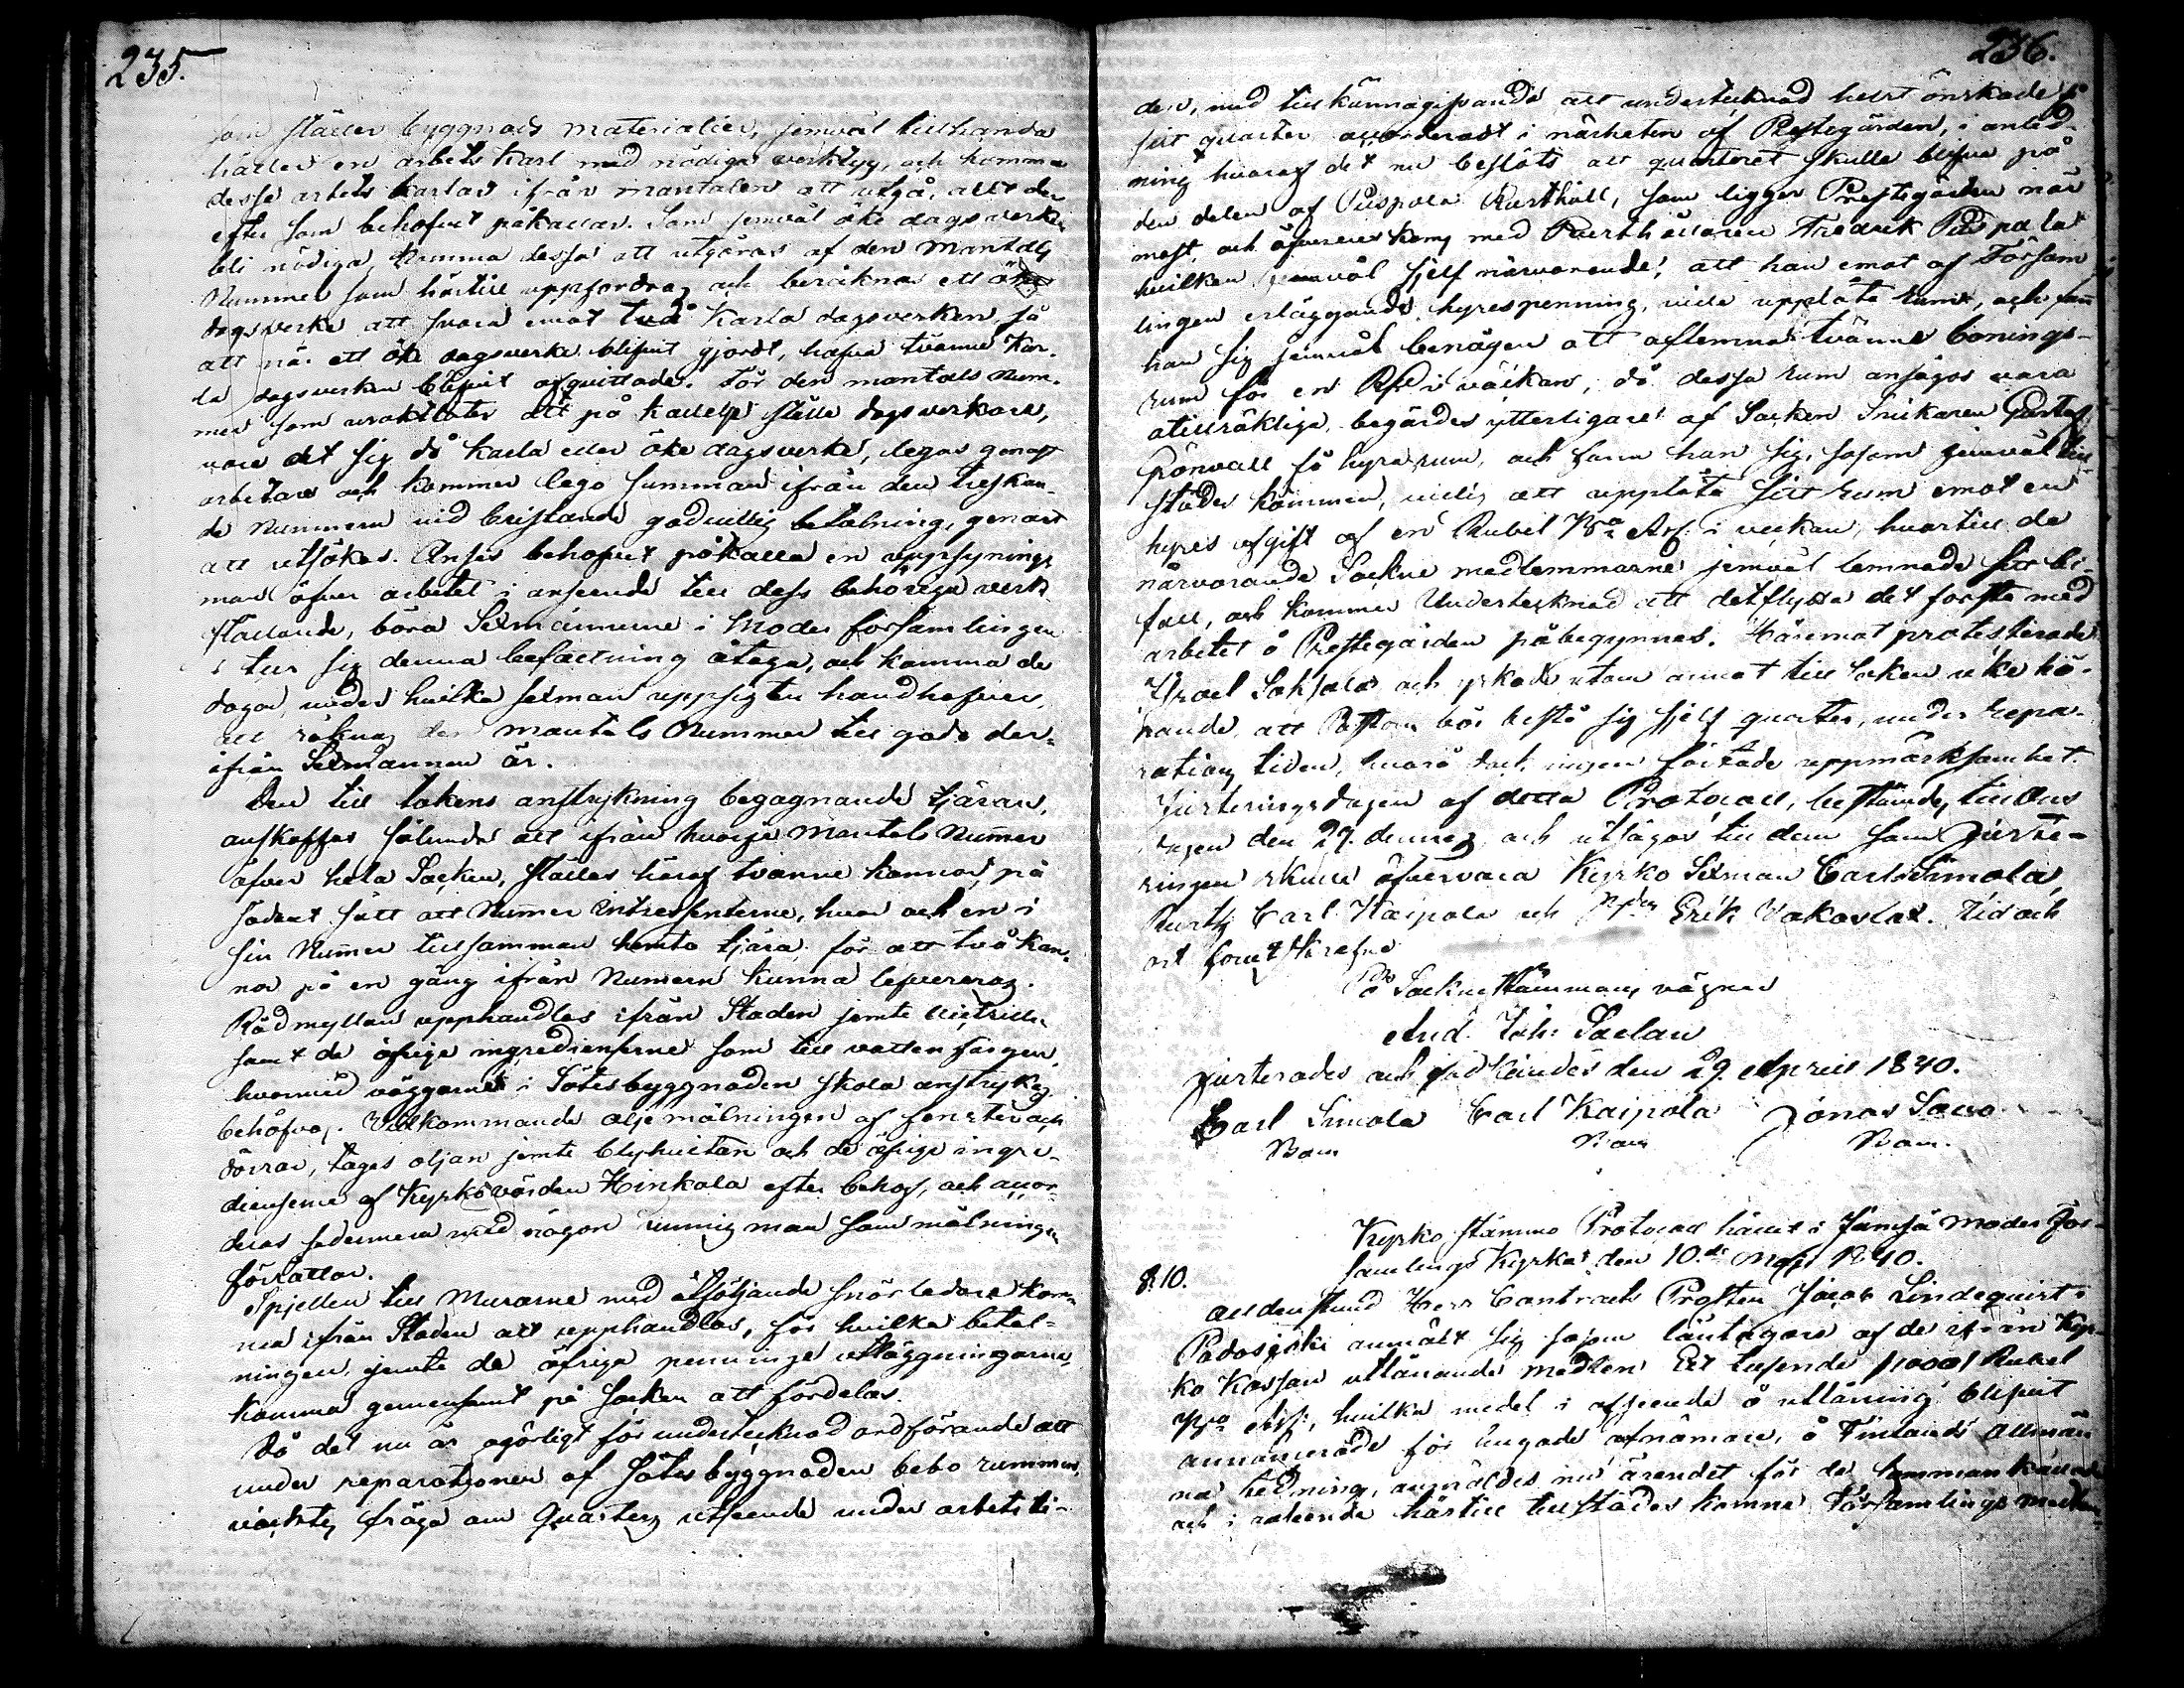 235.
som ställer byggnads materialier, jemväl tillhanda
håller en arbets Karl med nödiga verktyg, och komma
desse arbets karlar ifrån mantalen att utgå, allt der
efter som behofvet påkallar. Som jemväl öke dagsverken
bli nödiga, komma dessa att utgöras af den Mantals
Nummer som härtill uppfordras och beräknas ett öke
dagsverke att svara emot två Karla dagsverken, så
att när ett öke dagsverke blifvit gjordt, hafva tvänne Kar-
la dagsverken blifvit afqvittade. För den mantals Num-
mer som uraktlåter att på kallelse ställe dagsverkare,
vare det sig då karla eller öke dagsverke, legas genast
arbetare och kommer lego summan ifrån den treskan-
de Nummern vid bristande godvillig betalning, genast
att utsökas. Anses behofvet påkalla en uppsynings
man öfver arbetet i anseende till dess behöriga verk-
ställande, böra Sexmännerne i Moder församlingen
i tur sig denna befattning åtaga, och komma de
dagar, under hvilka sexman uppsigten handhafver,
att räknas den mantals Nummer till godo der-
ifrån Sexmannen är.
Den till takens anstrykning begagnande tjäran,
anskaffas sålunda att ifrån hvarje Mantals Numer
öfver hela Socken, ställes häraf tvänne kannor, på
sådant sätt att Numer Intressenterne, hvar och en i
sin Numer tillsamman hemta tjära, för att två kan-
nor på en gång ifrån Numern kunna levereras.
Rödmyllan upphandlas ifrån Staden jemte victrillen
samt de öfrige ingredienserne som till vatten färgen,
hvarmed väggarne i Sätesbyggnaden skola anstrykas
behöfvas. Vidkommande oljemålningen af fenster och
dörrar, tages oljan jemte blyhvitan och de öfrige ingre-
dienserne af Kyrkovärden Hinkala efter behof, och accor-
deras sedermera med någon kunnig man som målningen
förrättar.
Spjellen till Murarne med åtföljande snörledare kom-
ma ifrån Staden att upphandlas, för hvilka betal-
ningen, jemte de öfrige penninge utläggningarne,
komma gemensamt på socken att fördelas.
Då det nu är ogörligt för undertecknad ordförande att
under reparationen af Sätesbyggnaden bebo rummen,
väcktes fråga om Quarters utseende under arbets ti-
236.
den, med tillkännagifvande att undertecknad helst önskade få
sitt quarter accorderadt i närheten af Prestegården, i anled-
ning hvaraf det nu beslöts att quarteret skulle blifva på
den delen af Piispala Rusthåll, som ligger Prestegården när-
mast, och öfverens koms med Rusthållaren Fredrik Piispala
hvilken jemväl sjelf närvarande, att han emot af Försam-
lingen erläggande hyrespenning, ville upplåta rum, och fann
han sig jemväl benägen att aflemna tvänne bonings-
rum för en Rbl i veckan; då dessa rum ansågos vara
otillräklige, begärdes ytterligare af Socken Snickaren Gustaf
Grönvall få hyra rum, och fann han sig, såsom jemväl till-
städes kommen, villig att upplåta sitt rum emot en
hyres afgift af en Rubel B:co Ass. i veckan, hvartill de
närvarande Sockne medlemmarne jemväl lemnade sitt bi-
fall, och kommer Undertecknad att ditflytta det första med
arbetet å Prestegården påbegynnes. Häremot protesterade
Israel Sahala och yrkade utom annat till saken icke hö-
rande, att Pastorn bör bestå sig sjelf quarter, under repa-
rations tiden, hvarå dock ingen fästade uppmärksamhet.
Justeringsdagen af detta Protocoll, bestämdes till Ons-
dagen den 29. dennes, och utsågos till dem som juste-
ringen skulle öfvervara Kyrko Sexman Carl Simola,
Rusth. Carl Kaipola och Erik Vakaslax. Tid och
ort som ofvan skrefne
På Sockne Stämmans vägnar
And. Joh. Saelan
Justerades och godkändes den 29. April 1840.
Carl Simola Carl Kaipola Jonas Savo
Bom. Bom. Bom.
Kyrko stämmo Protocoll hållet i Jämsä Moder För-
samlings Kyrka den 10:de Maji 1840.
§. 10.
Alldenstund Herr Contracts Prosten Jacob Lindequist i
Padasjoki anmält sig såsom låntagare af de ifrån Kyr-
ko Kassan utlånande medlen Ett tusende /1000/ Rubel
B:co Ass:, hvilka medel i afseende å utlåning blifvit
annoncerade för hugade afnämare, å Finlands Allmän-
na Tidning, anmäldes nu ärendet för de samman kallade
och i anseende härtill tillstädes komne Församlings medlem-